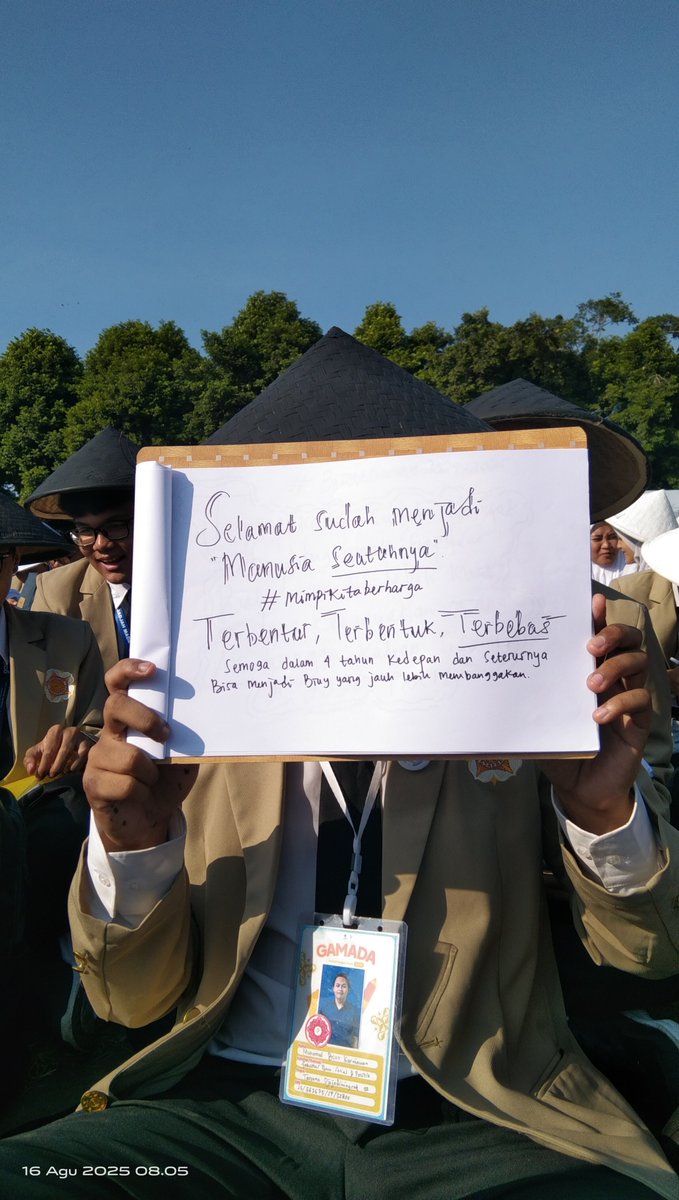 Selamat sudah menjadi
"Manusia Seutuhnya".
#mimpikitaberharga
Terbentur, Terbentuk, Terbebas
Semoga dalam 4 tahun kedepan dan seterusnya
Bisa menjadi Bruy yang jauh lebih membanggakan.
GAMADA
16 Agu 2025 08.05